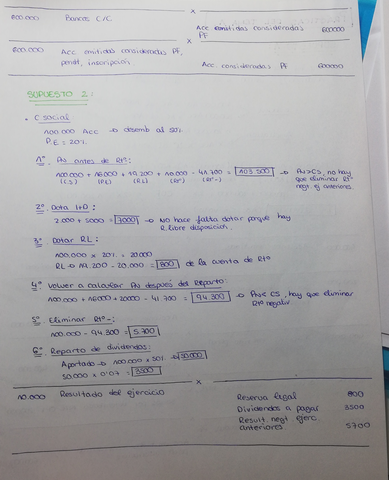 x
800.000 Bancos C/C
Acc emitidas consideradas PF 800000
x
800.000 Acc emitidas consideradas PF, pendt. inscripción
Acc. consideradas PF 800000
SUPUESTO 2:
C social
100.000 Acc → desemb al 50%
P.E = 20%
1º PN antes de Rtº:
100.000 + 16000 + 19.200 + 10.000 - 41.700 = 103.500 → PN>CS, no hay
(C.S) (P.E) (R.L) (Rtº) (Rtº-) que eliminar Rtº
negt. ej anteriores.
2º Dota I+D:
2.000 + 5000 = 7000 → No hace falta dotar porque hay
R. libre disposición.
3º Dotar RL:
100.000 x 20% = 20.000
RL → 19.200 - 20.000 = 800 de la cuenta de Rtº
4º Volver a calcular PN después del Reparto:
100.000 + 16000 + 20000 - 41.700 = 94.300 → PN< CS, hay que eliminar
Rtº negativ
5º Eliminar Rtº-:
100.000 - 94.300 = 5.700
6º Reparto de dividendos:
Aportado → 100.000 x 50% = 50.000
50.000 x 0'07 = 3500
x
10.000 Resultado del ejercicio
Reserva legal 800
Dividendos a pagar 3500
Result. negt ejerc. anteriores 5700